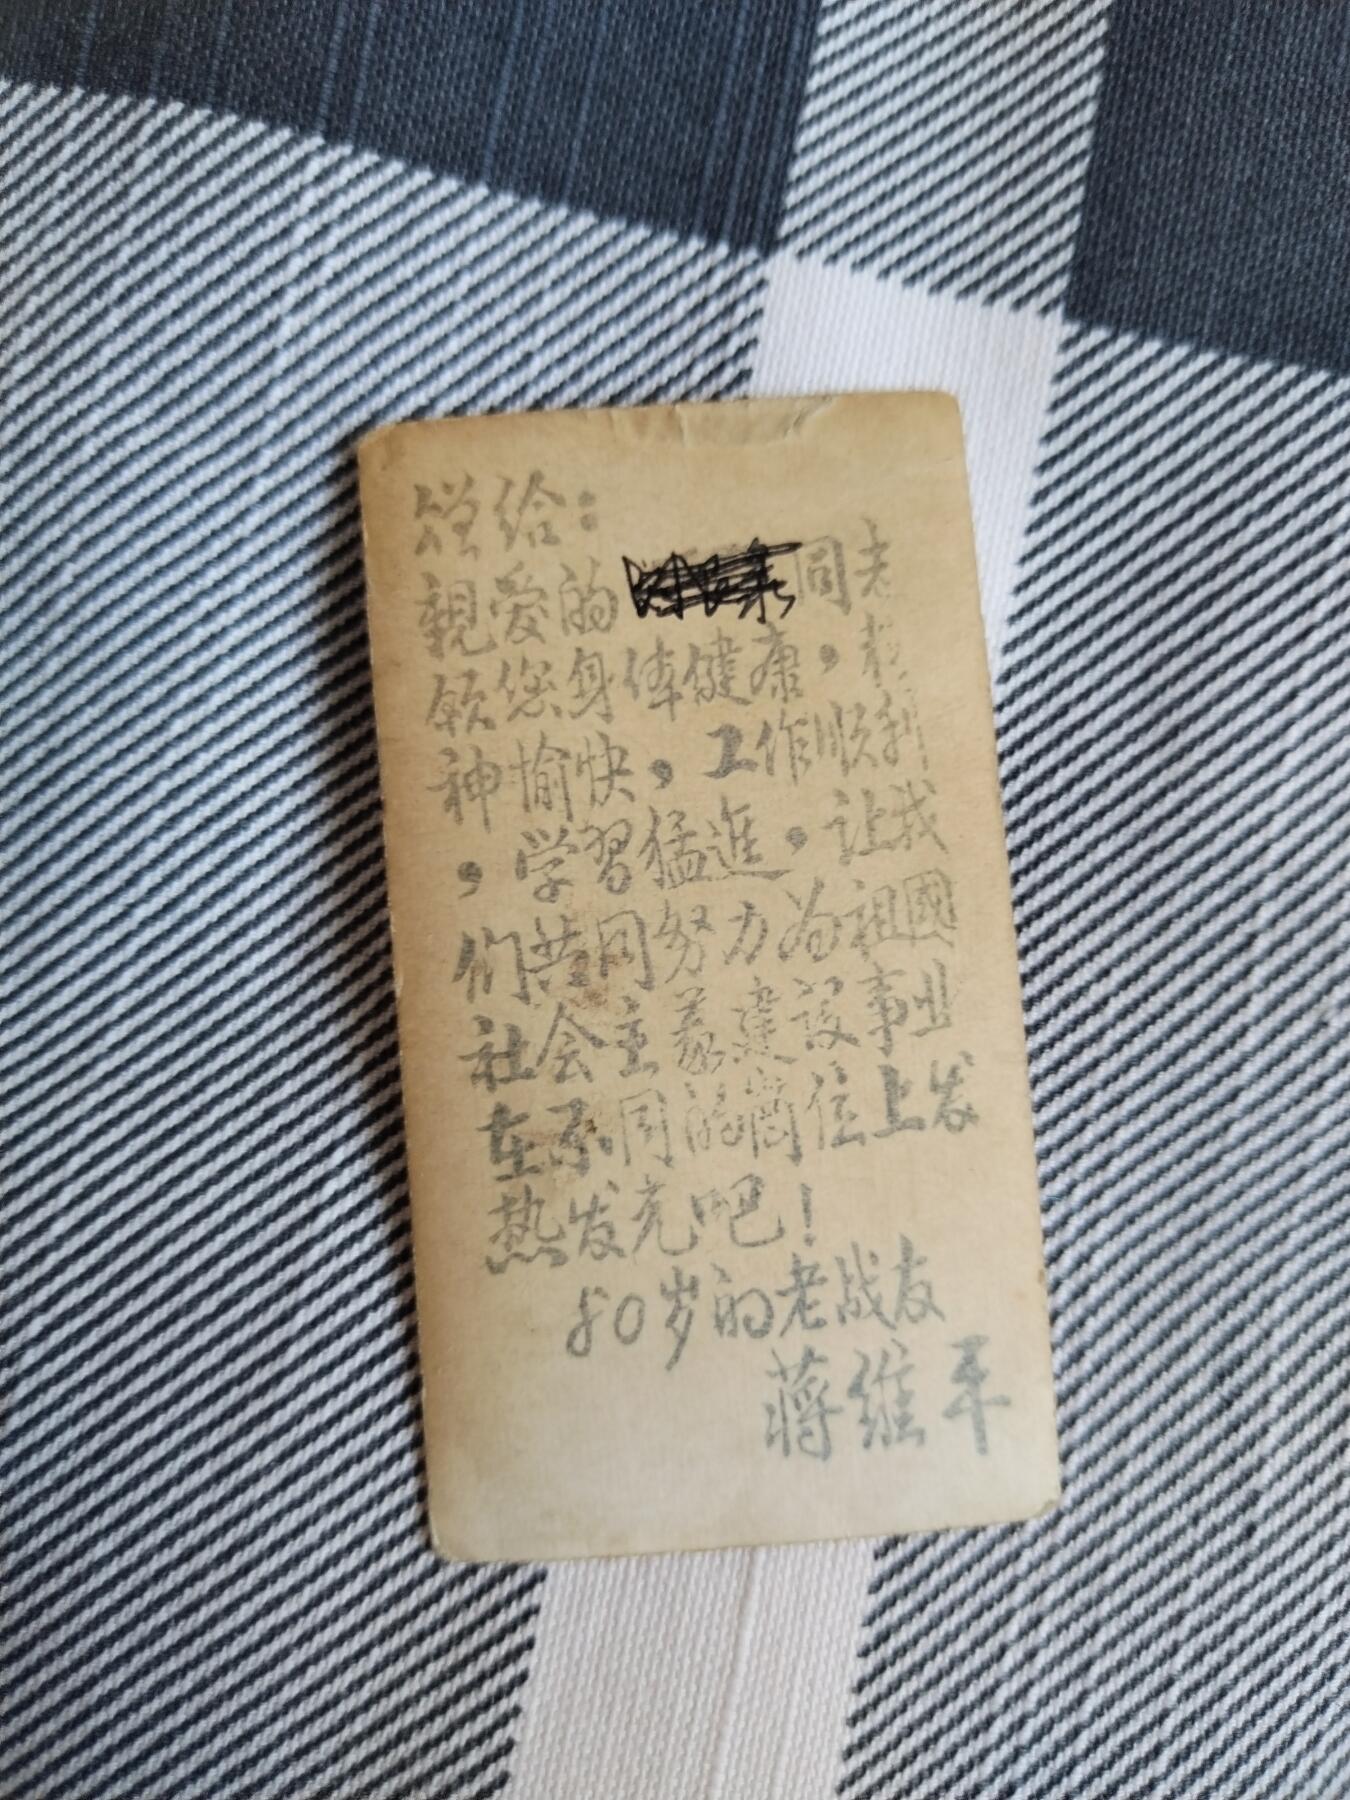 赠给：
親爱的 同志
願您身体健康，精
神愉快，工作顺利
，学習猛進。让我
们共同努力为祖國
社会主義建设事业
在不同的崗位上发
热发光吧！
50岁的老战友
蒋维平